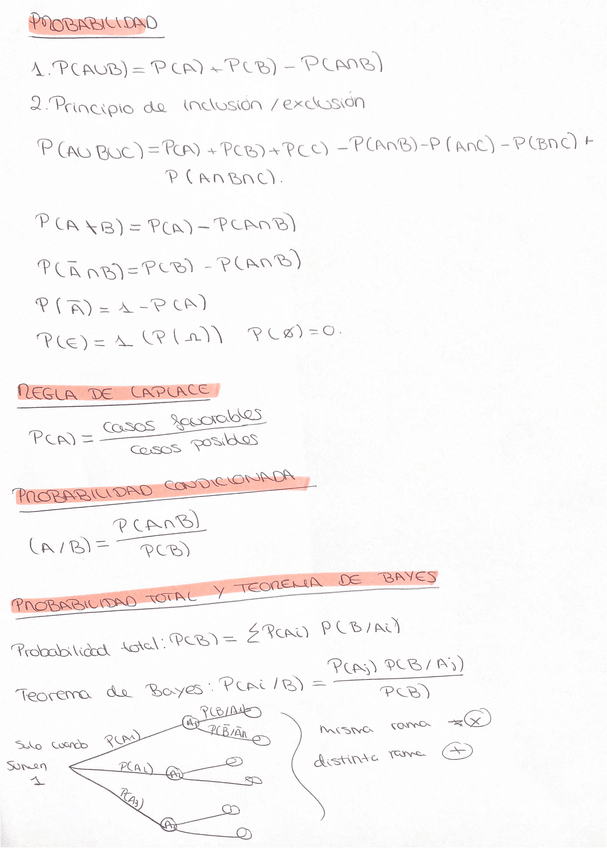 PROBABILIDAD
1. P(A∪B) = P(A) + P(B) - P(A∩B)
2. Principio de inclusión / exclusión
P(A∪B∪C) = P(A) + P(B) + P(C) - P(A∩B) - P(A∩C) - P(B∩C) +
P(A∩B∩C).
P(A\B) = P(A) - P(A∩B)
P(Ā∩B) = P(B) - P(A∩B)
P(Ā) = 1 - P(A)
P(E) = 1 (P(Ω)) P(∅) = 0.
REGLA DE LAPLACE
P(A) = casos favorables / casos posibles
PROBABILIDAD CONDICIONADA
(A/B) = P(A∩B) / P(B)
PROBABILIDAD TOTAL Y TEOREMA DE BAYES
Probabilidad total: P(B) = ΣP(Ai) P(B/Ai)
Teorema de Bayes: P(Ai/B) = P(Aj) P(B/Aj) / P(B)
Solo cuando
sumen
1
P(A1)
P(A3)
misma rama = x
distinta rama +